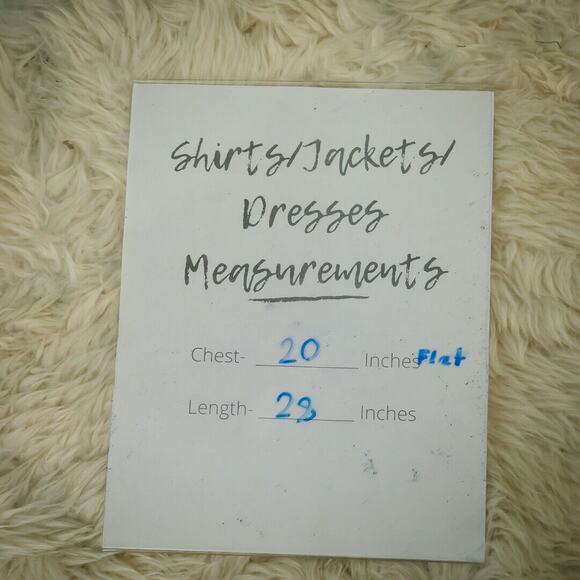 Shirts/Jackets/
Dresses
Measurements
Chest- 20 Inches Flat
Length- Inches